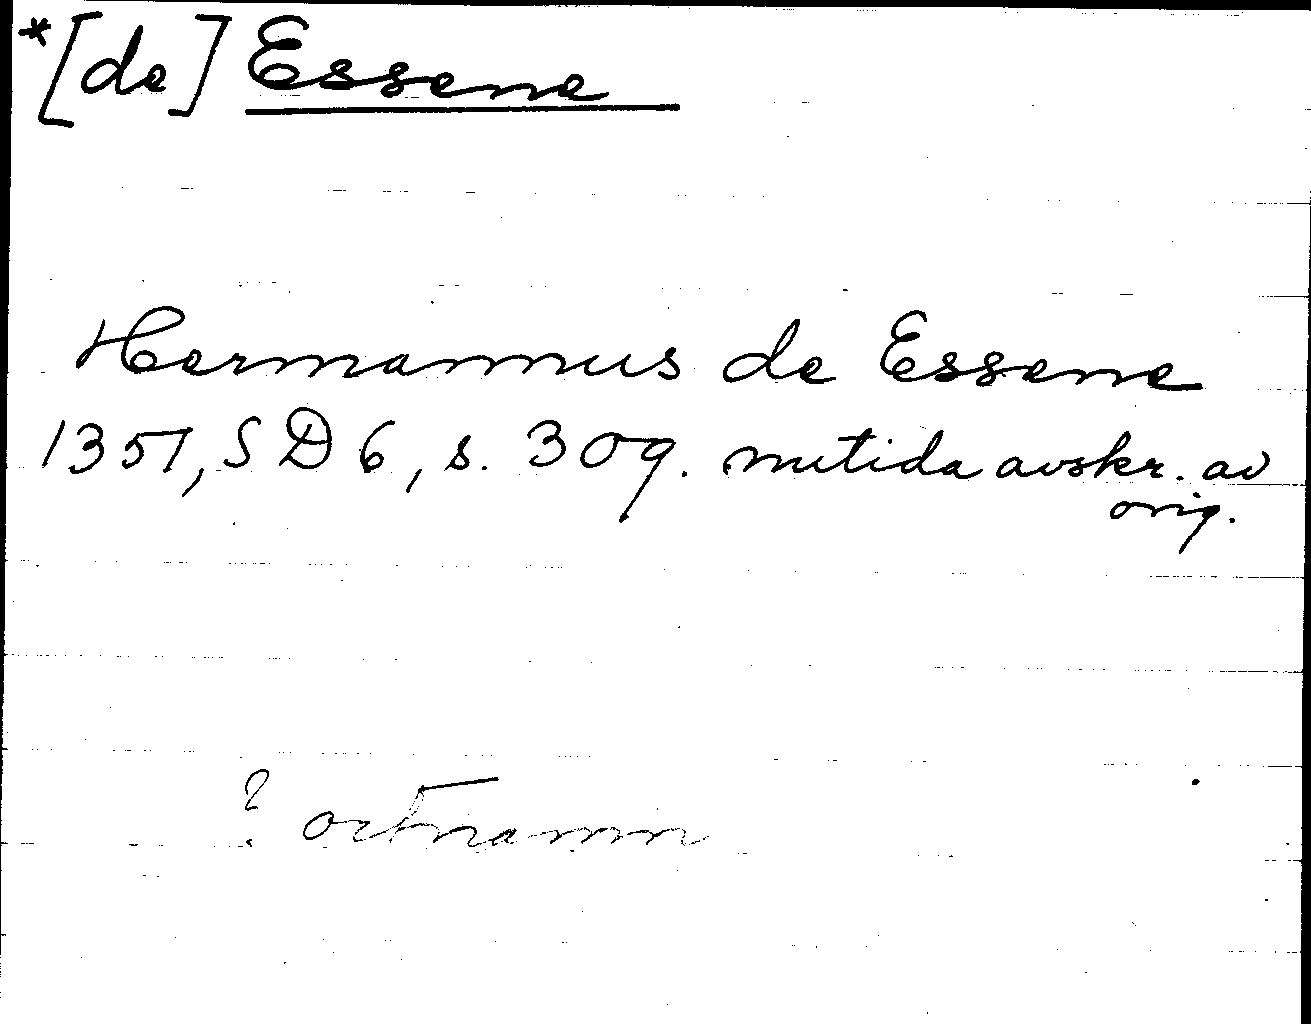 *[de] Essene
Hermannus de Essene
1351, SD 6, s. 309. nutida avskr. av
orig.
? ortnamn